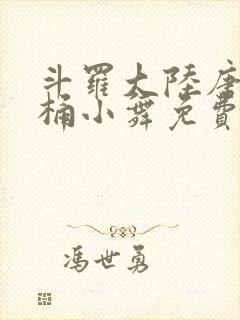 斗羅大陸唐
桶小舞免費
馮世勇